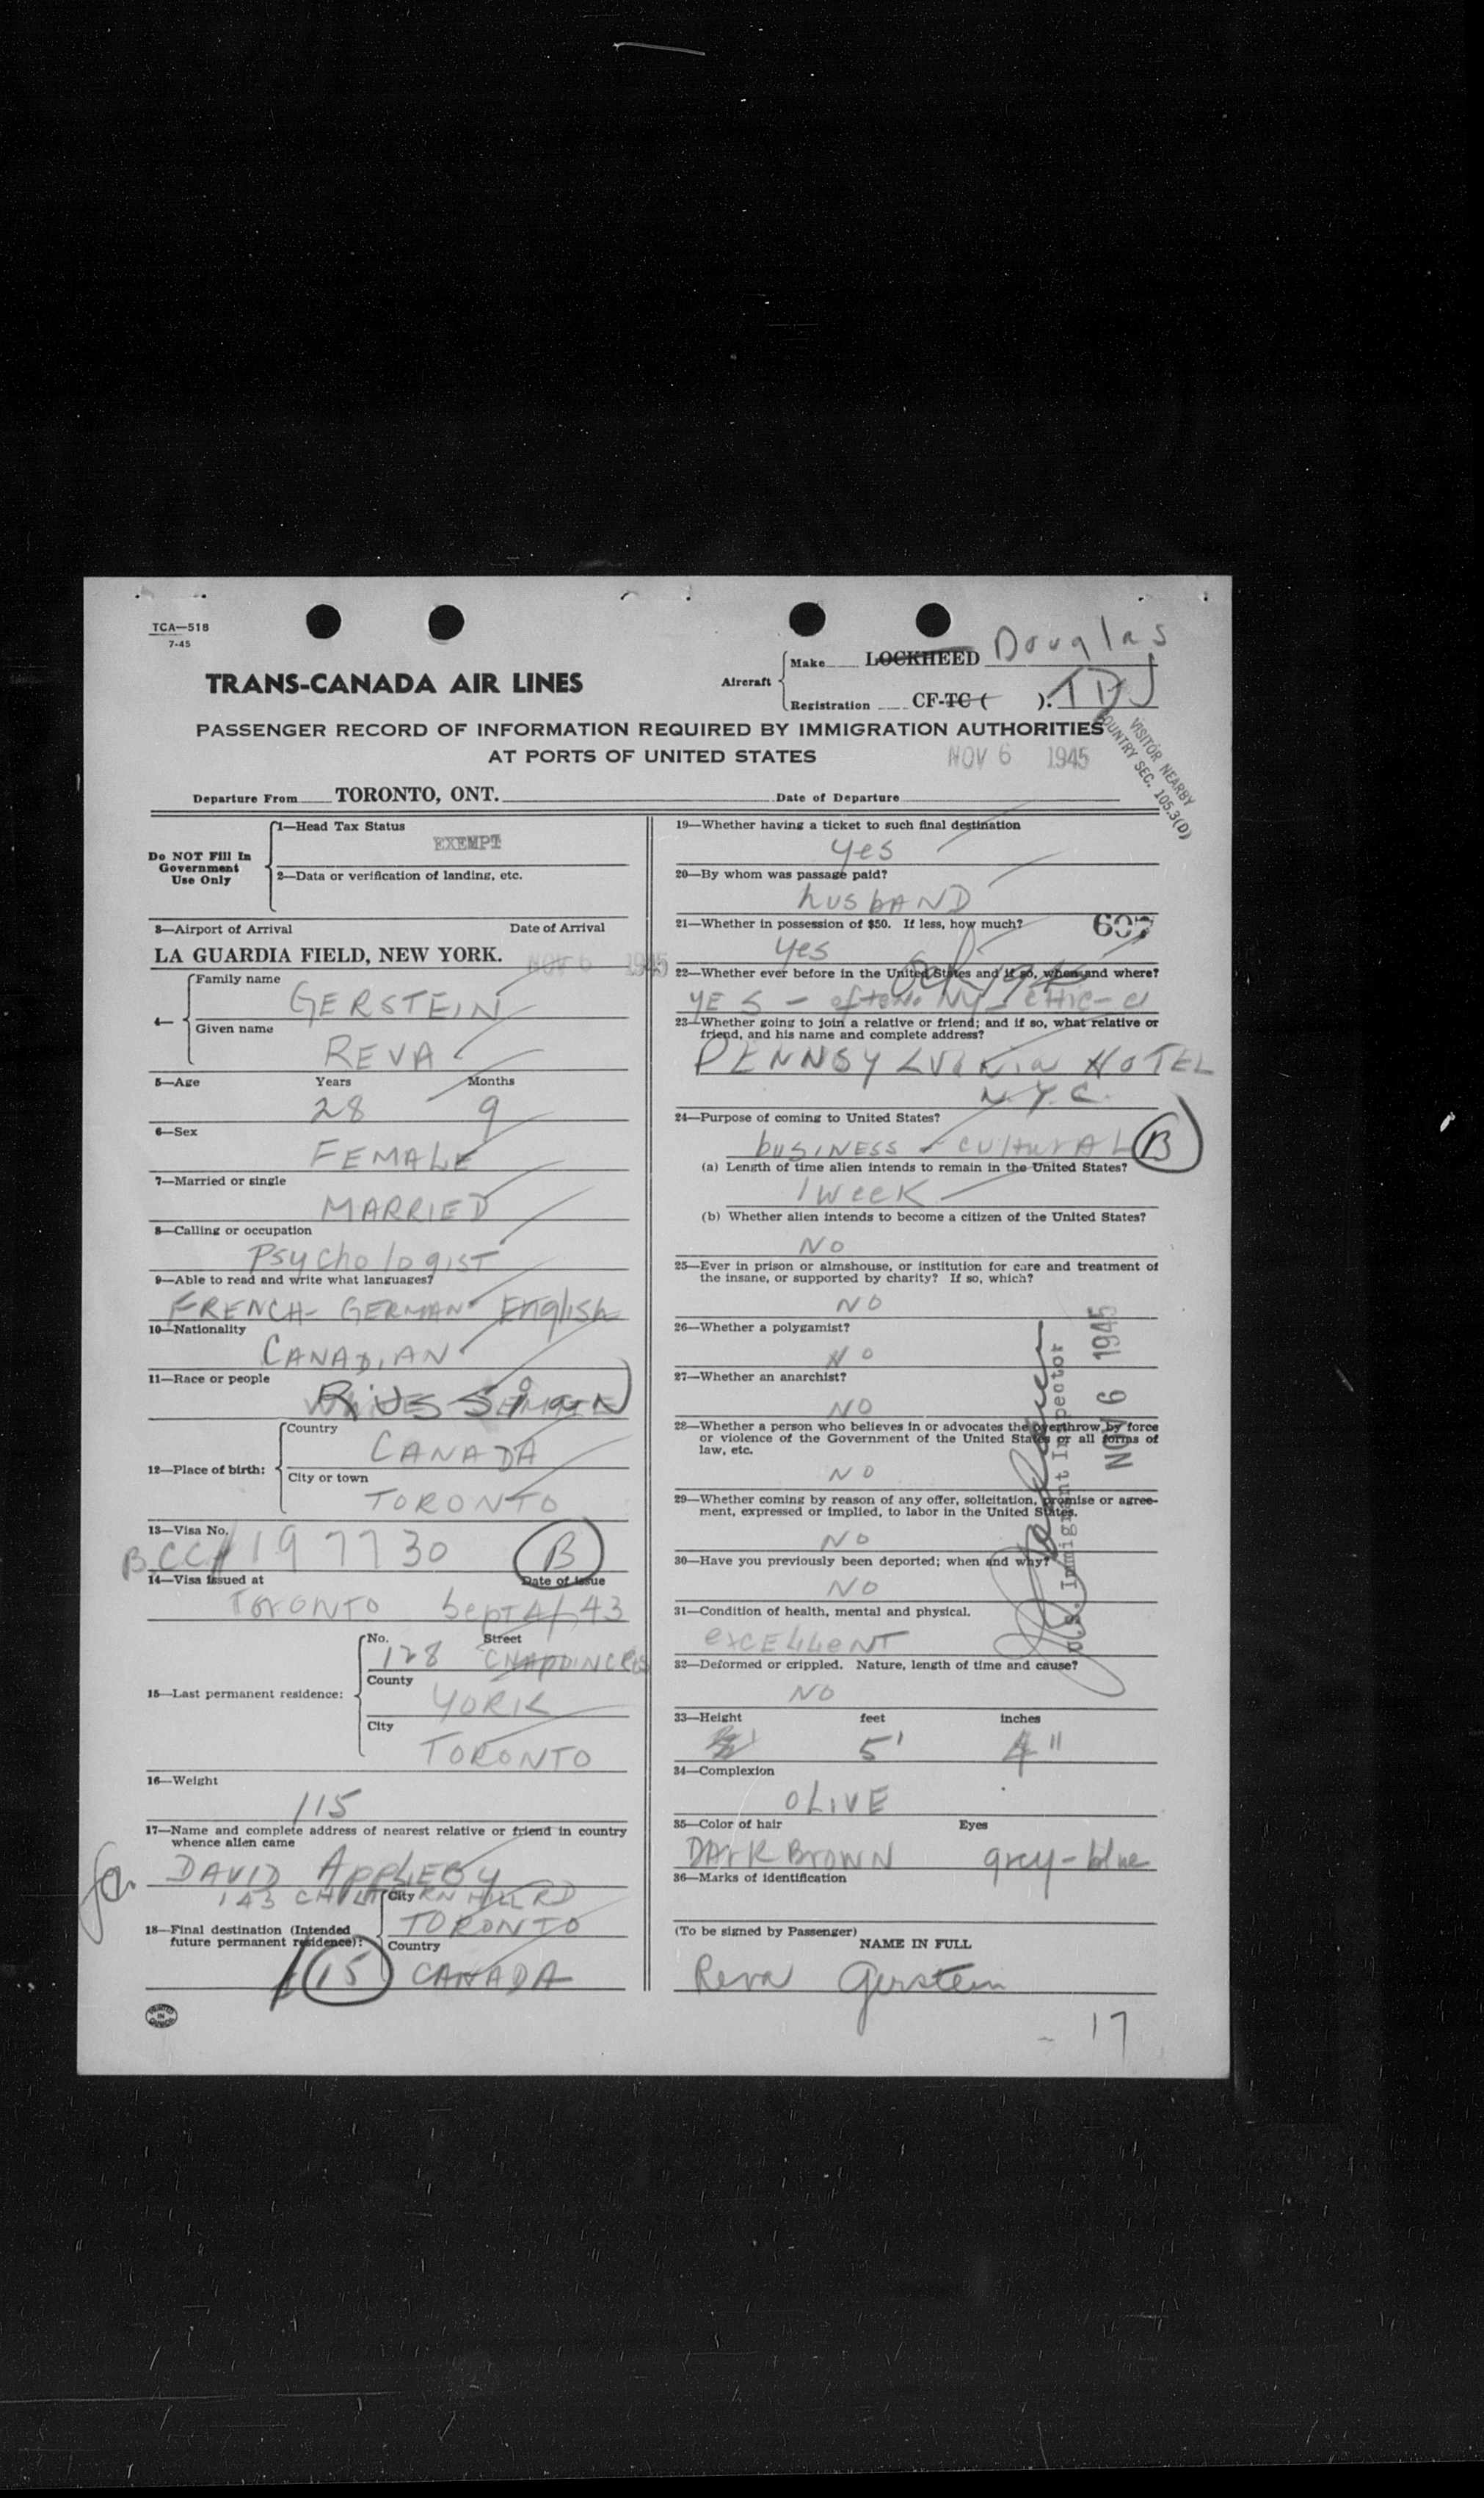 TCA—518
7-45
TRANS-CANADA AIR LINES
Aircraft
Make LOCKHEED Douglas
Registration CF-TC ( ). TDJ
PASSENGER RECORD OF INFORMATION REQUIRED BY IMMIGRATION AUTHORITIES
AT PORTS OF UNITED STATES
NOV 6 1945
VISITOR NEARBY
COUNTRY SEC. 105.3(D)
Departure From TORONTO, ONT. Date of Departure
Do NOT Fill In
Government
Use Only
1—Head Tax Status
EXEMPT
2—Data or verification of landing, etc.
3—Airport of Arrival Date of Arrival
LA GUARDIA FIELD, NEW YORK. NOV 6 1945
4—
Family name
GERSTEIN
Given name
REVA
5—Age Years Months
28 9
6—Sex
FEMALE
7—Married or single
MARRIED
8—Calling or occupation
Psychologist
9—Able to read and write what languages?
FRENCH- GERMAN- English
10—Nationality
CANADIAN
11—Race or people
Russian
12—Place of birth:
Country
CANADA
City or town
TORONTO
13—Visa No.
B.CC# 197730 B
14—Visa issued at Date of issue
TORONTO Sept 4/43
15—Last permanent residence:
No. Street
128
County
YORK
City
TORONTO
16—Weight
115
17—Name and complete address of nearest relative or friend in country
whence alien came
DAVID APPLEBY
143 CHILTERN HILL RD
18—Final destination (Intended
future permanent residence):
City
TORONTO
Country
15 CANADA
PRINTED
IN
CANADA
19—Whether having a ticket to such final destination
yes
20—By whom was passage paid?
husBAND
21—Whether in possession of $50. If less, how much?
607
yes
22—Whether ever before in the United States and if so, when and where?
YES - often NY -
23—Whether going to join a relative or friend; and if so, what relative or
friend, and his name and complete address?
PENNSYLVANIA HOTEL
N.Y.C.
24—Purpose of coming to United States?
busINESS - CULTURAL B
(a) Length of time alien intends to remain in the United States?
1 Week
(b) Whether alien intends to become a citizen of the United States?
NO
25—Ever in prison or almshouse, or institution for care and treatment of
the insane, or supported by charity? If so, which?
NO
26—Whether a polygamist?
NO
27—Whether an anarchist?
NO
28—Whether a person who believes in or advocates the overthrow by force
or violence of the Government of the United States or all forms of
law, etc.
NO
29—Whether coming by reason of any offer, solicitation, promise or agree-
ment, expressed or implied, to labor in the United States.
NO
30—Have you previously been deported; when and why?
NO
U.S. Immigrant Inspector
NOV 6 1945
31—Condition of health, mental and physical.
excELLeNT
32—Deformed or crippled. Nature, length of time and cause?
NO
33—Height feet inches
5' 4"
34—Complexion
OLIVE
35—Color of hair Eyes
DARK BROWN grey-blue
36—Marks of identification
(To be signed by Passenger)
NAME IN FULL
Reva Gerstein
- 17